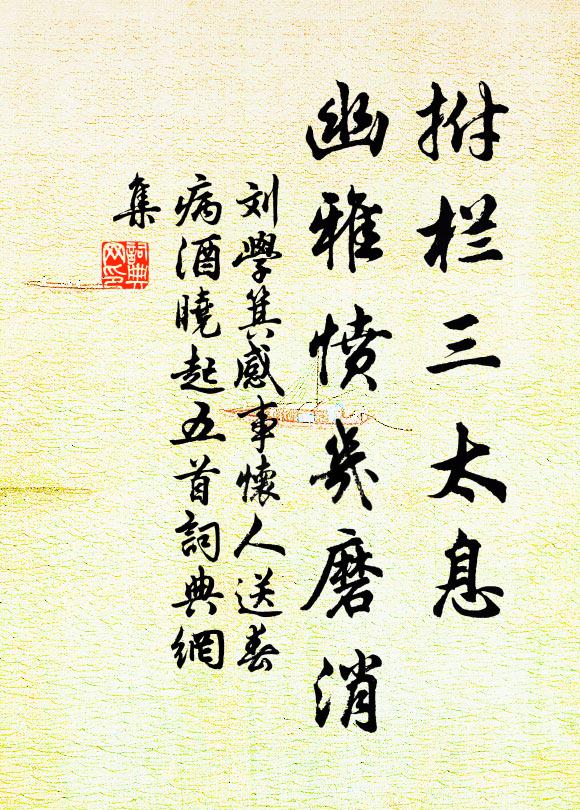 拊栏三太息
幽雅愤炎磨消
刘學箕感事懷人送春
病酒曉起五首詞典網
集
詞典
网